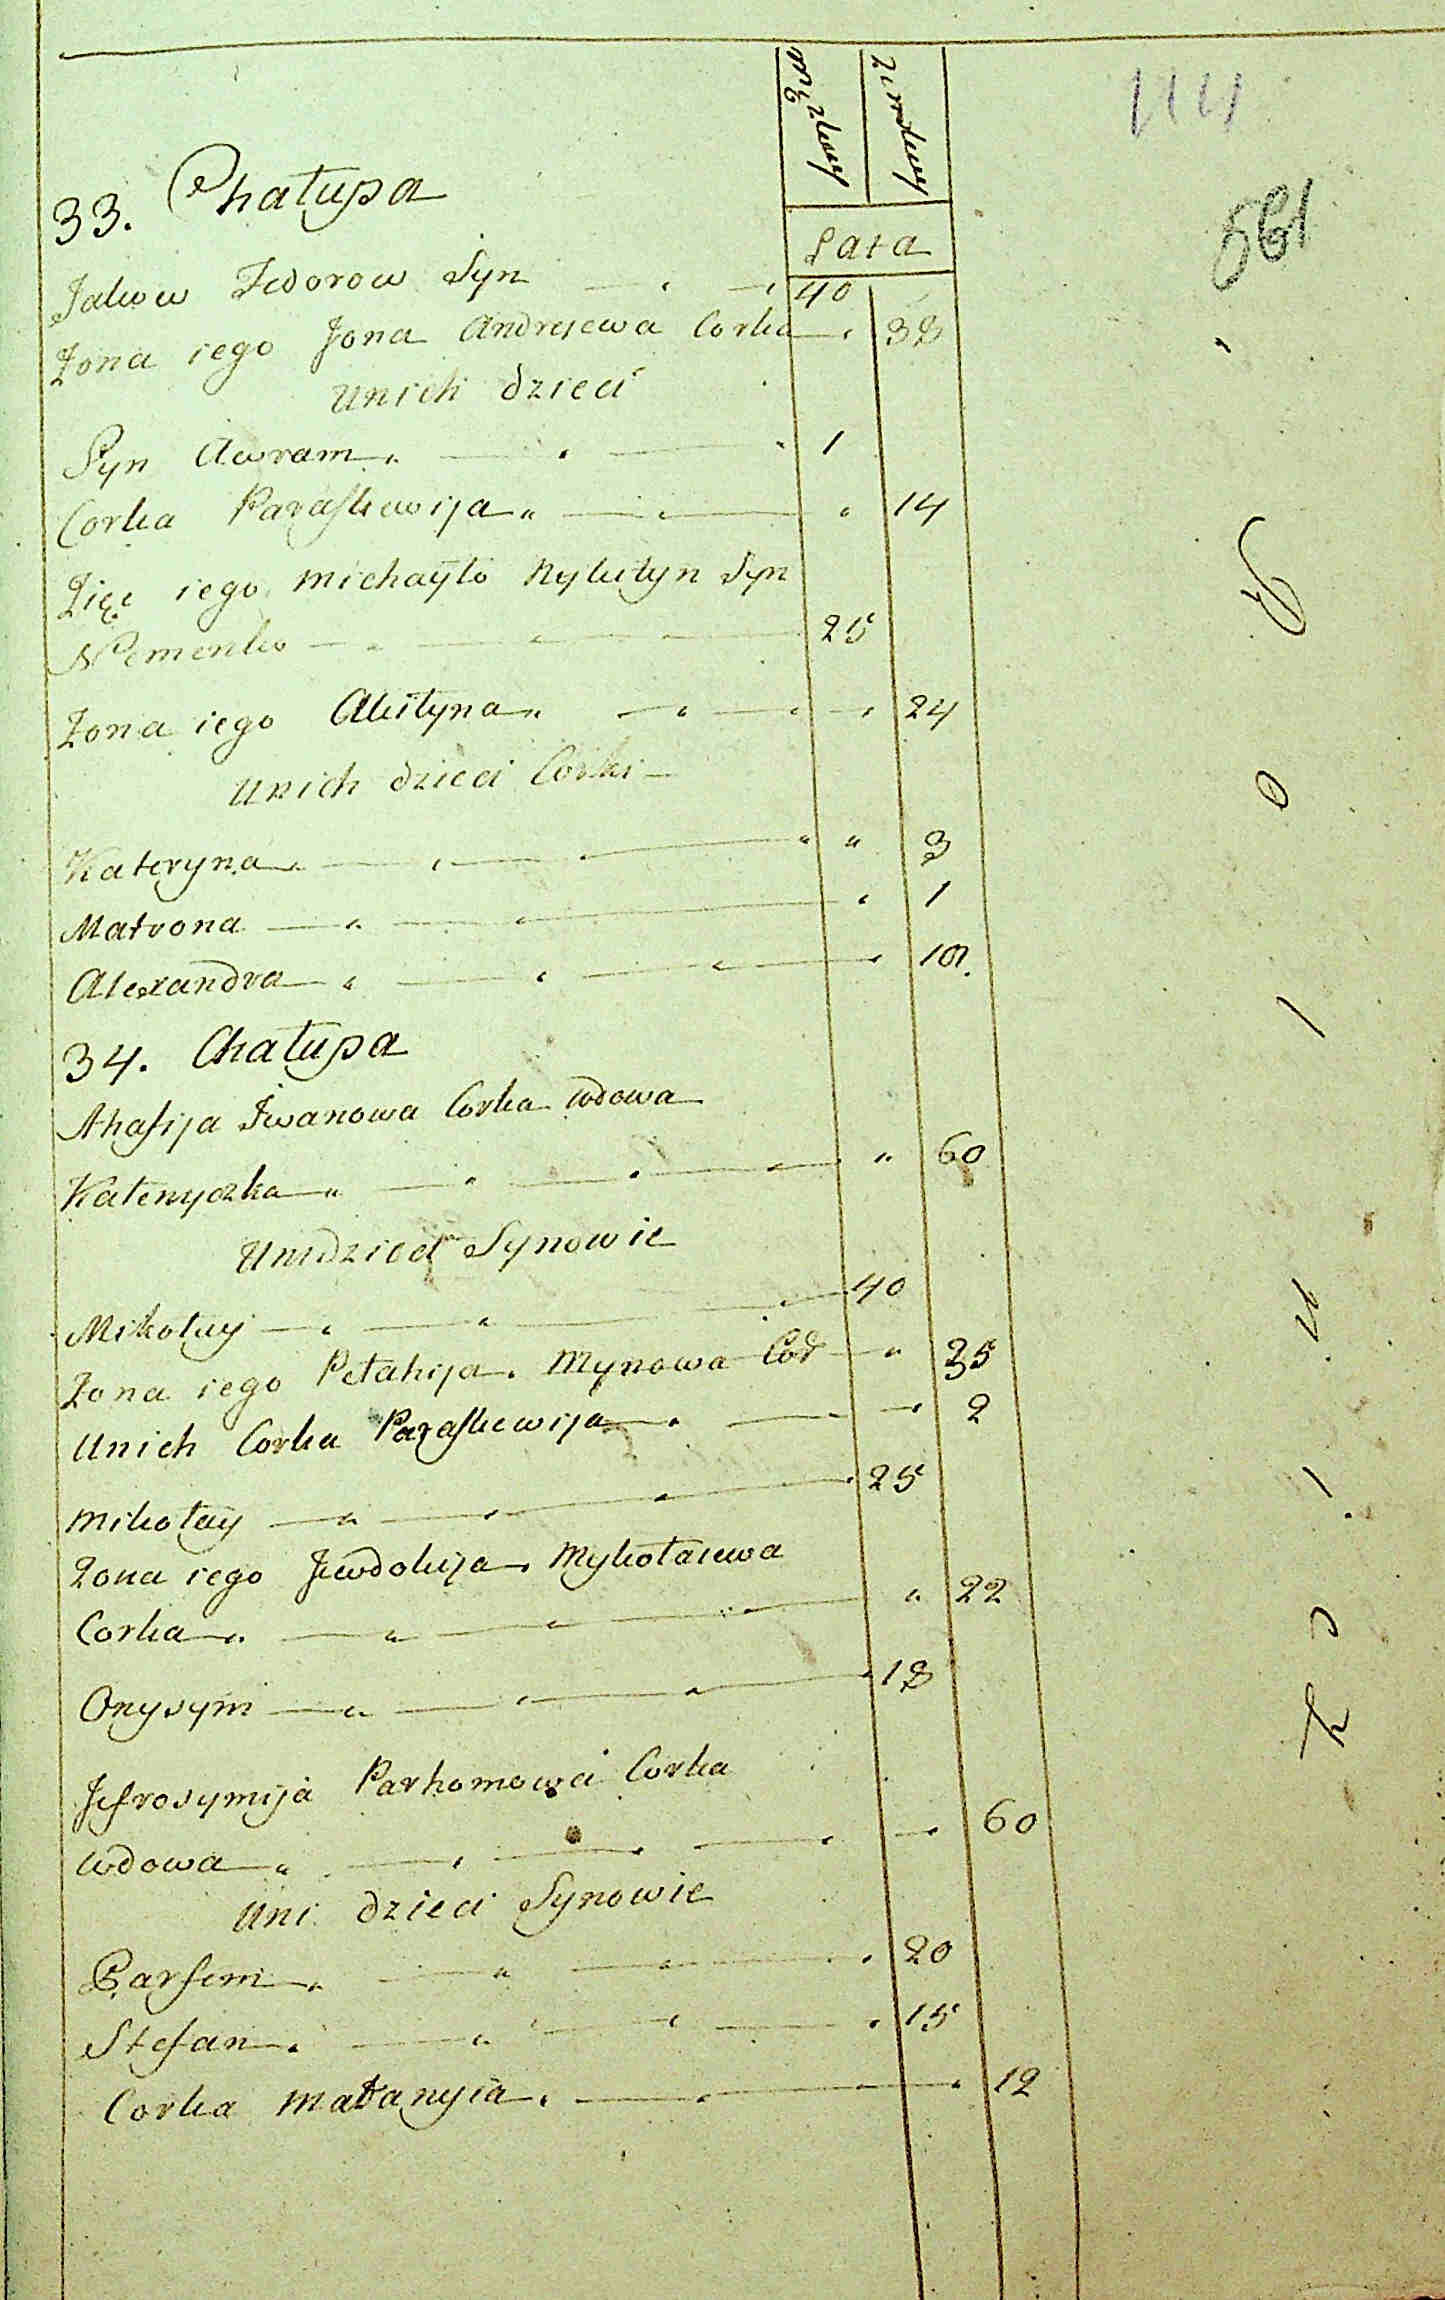 114
561
Męzkiey Zenskiey
Lata
33. Chałupa
Jakow Fedorow Syn 40
Zona iego Jona Andrejewa Corka 38
Unich dzieci
Syn Awram 1
Corka Paraskewija 14
Zięć iego Michayło Nykityn Syn
Nemenko 25
Zona iego Akilyna 24
Unich dzieci Corki
Kateryna 3
Matrona 1
Alexandra 10
34. Chałupa
Ahafija Jwanowa Corka wdowa
Katenyczka 60
Uni dzieci Synowie
Mikołay 40
Zona iego Pełahija Mynowa Cor 35
Unich Corka Paraskewija 2
Mikołay 25
Zona iego Jewdokija Mykołaiewa
Corka 22
Onysym 18
Jefrosymija Parhomowa Corka
wdowa 60
Uni dzieci Synowie
Parfem 20
Stefan 15
Corka Małanyia 12